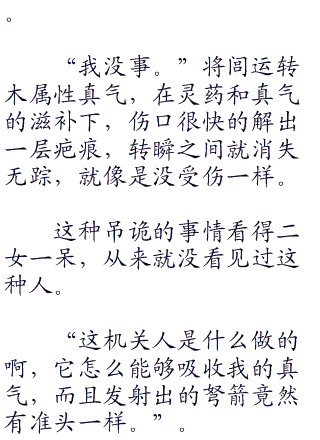 。
“我没事。”将闾运转
木属性真气，在灵药和真气
的滋补下，伤口很快的解出
一层疤痕，转瞬之间就消失
无踪，就像是没受伤一样。
这种吊诡的事情看得二
女一呆，从来就没看见过这
种人。
“这机关人是什么做的
啊，它怎么能够吸收我的真
气，而且发射出的弩箭竟然
有准头一样。”。